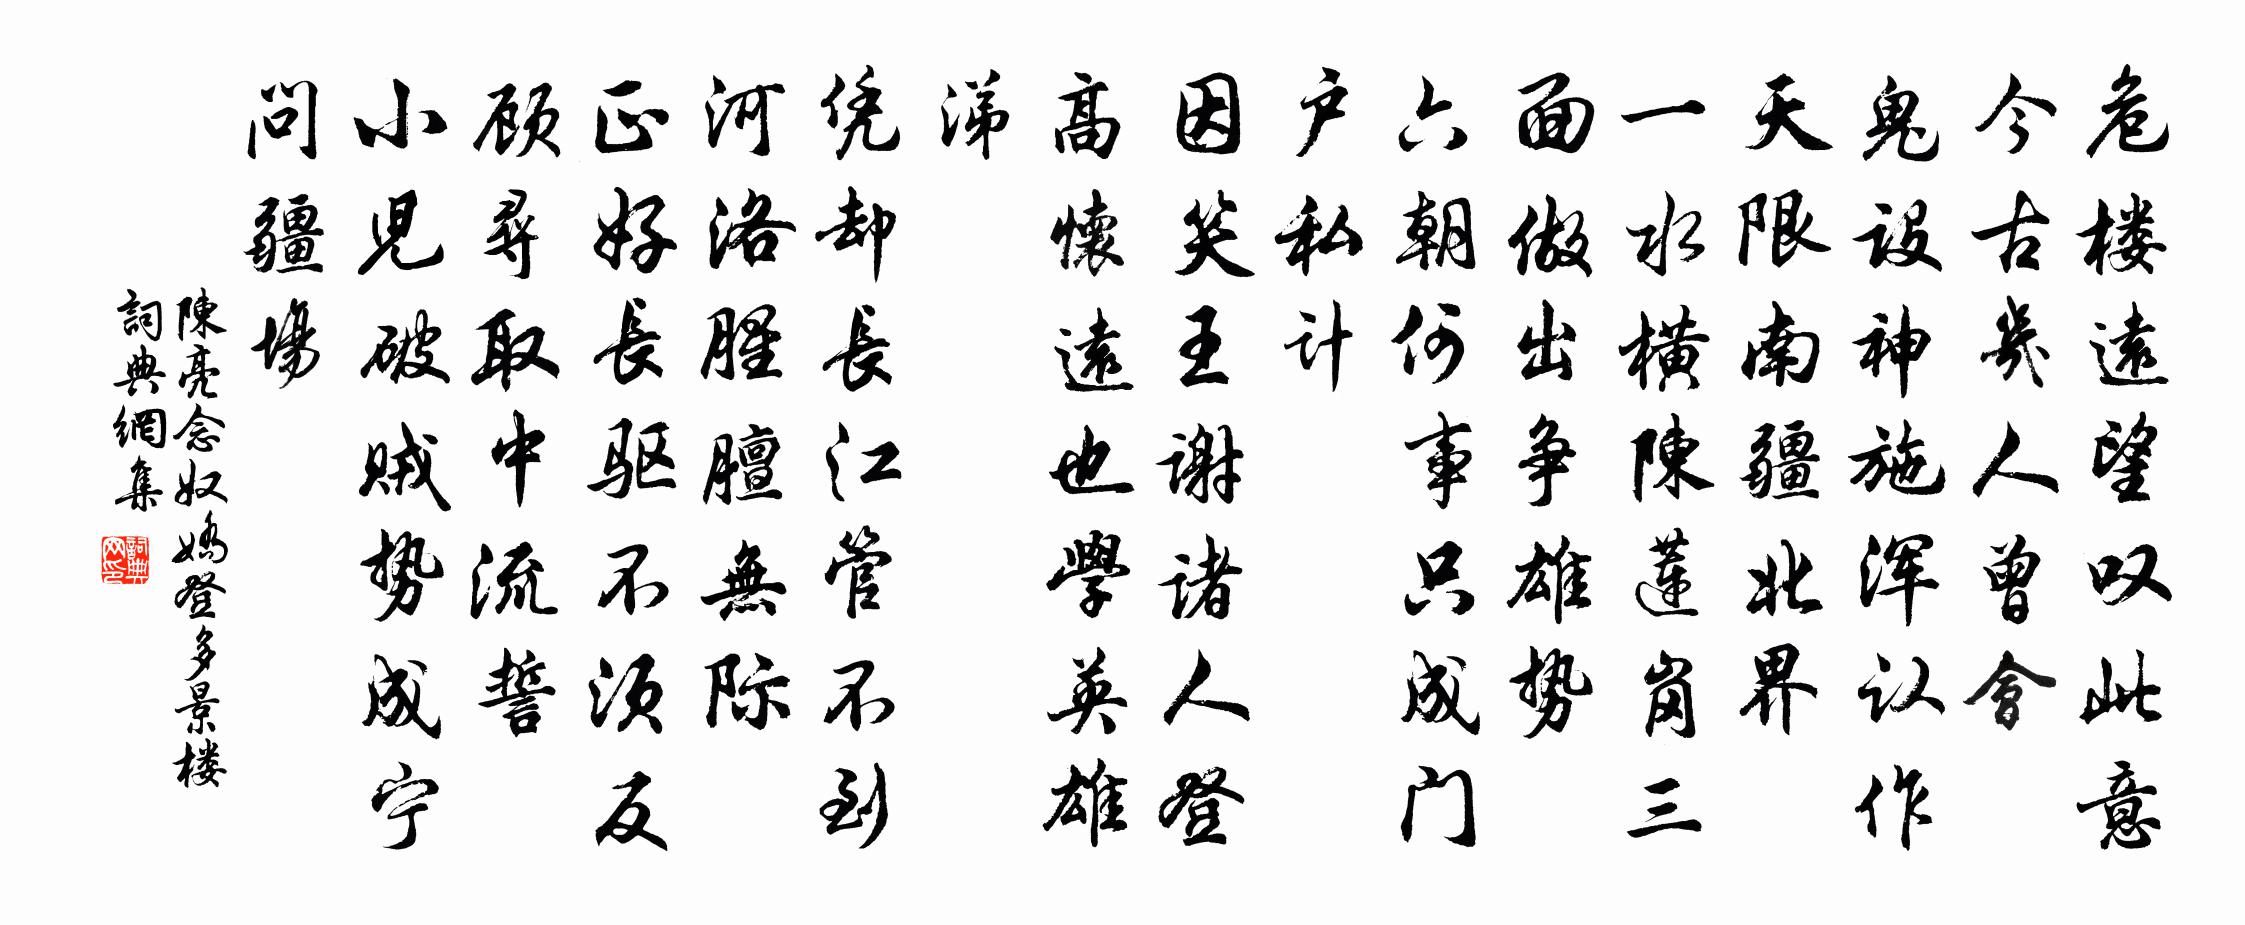 危楼遠望叹此意
今古幾人曾會
鬼设神施浑认作
天限南疆北界
一水横陳蓮崗三
面做出争雄势
六朝何事只成门
户私计
因笑王谢诸人登
高懷遠也學英雄
涕
凭却長江管不到
河洛腥膻無际
正好長驱不须反
顾尋取中流誓
小兒破贼势成宁
问疆場
陳亮念奴嬌登多景楼
詞典網集
詞典网印